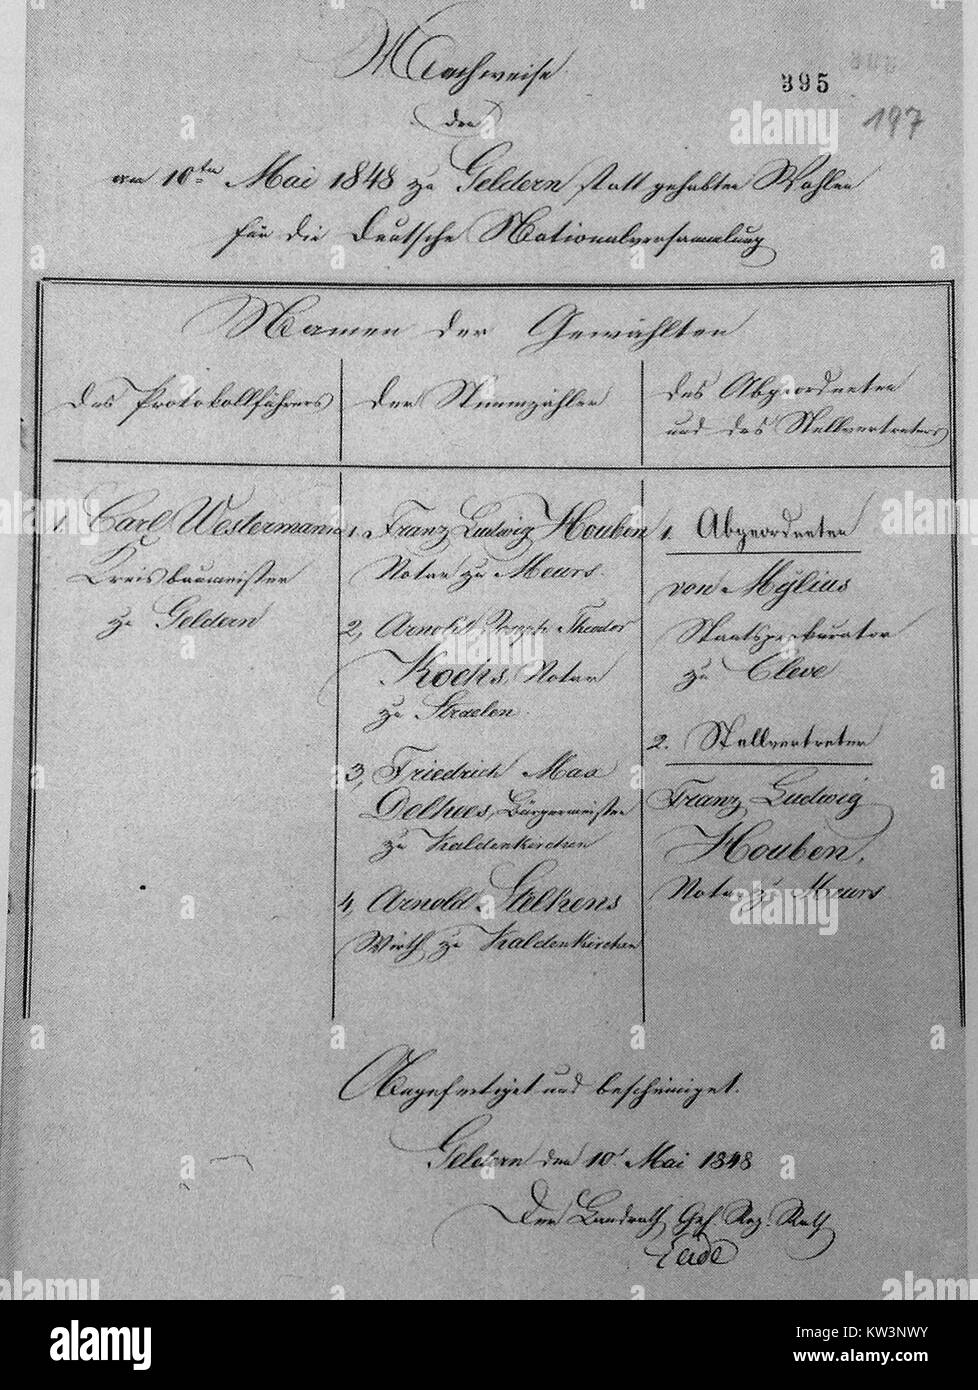 Nachweise
395
der
197
am 10ten Mai 1848 zu Geldern statt gehabten Wahlen
für die deutsche Nationalversammlung
Namen der Gewählten
des Protokollführers
der Stimmzähler
des Abgeordneten
und des Stellvertreters
1. Carl Westermann
Kreisbaumeister
zu Geldern
1. Franz Ludwig Houben
Notar zu Meurs.
2, Arnold Joseph Theodor
Kochs, Notar
zu Straelen.
3, Friedrich Max
Delhees, Bürgermeister
zu Kaldenkirchen
4, Arnold Stelkens
Wirth zu Kaldenkirchen
1. Abgeordneten
von Mylius
Staatsprokurator
zu Cleve
2. Stellvertreter
Franz Ludwig
Houben,
Notar zu Meurs.
und bescheiniget.
Geldern den 10t Mai 1848
Der Landrath Geh. Reg. Rath
alamy
Image ID: KW3NWY
www.alamy.com